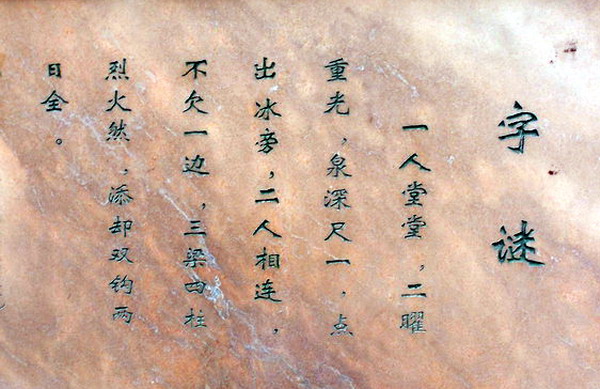 字谜
一人堂堂，二曜
重光，泉深尺一，点
出冰旁，二人相连，
不欠一边，三梁四柱
烈火然，添却双钩两
日全。